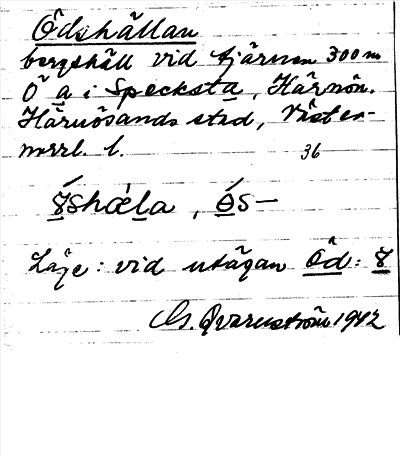 Ödshällan
bergshäll vid tjärnen 300 m
Ö a i Specksta, Härnön.
Härnösands stad, Väster-
norrl. l.
36
Läge: vid utägan Öd:
G. Qvarnström 1942